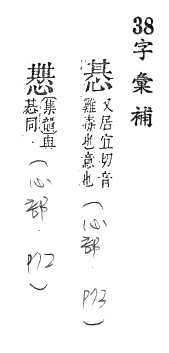 38字彙補
惎
又居宜切音
雞毒也意也
(心部. P13)
集韻與
惎同.
(心部. P12)